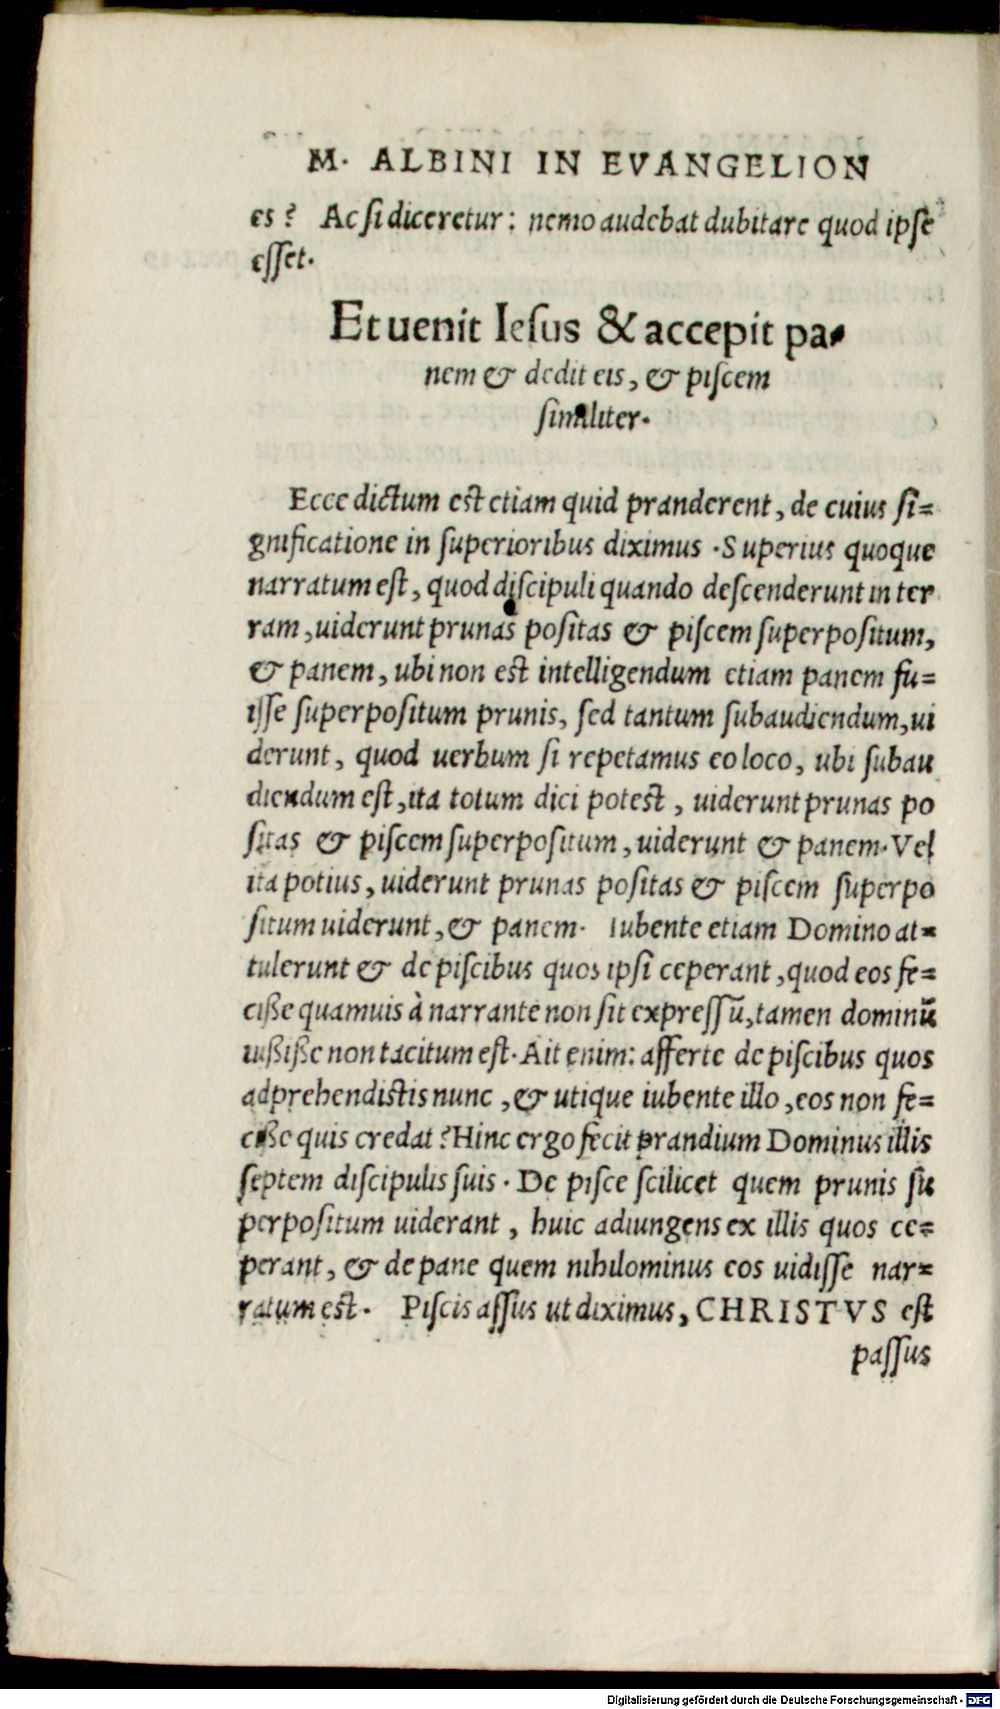 M. ALBINI IN EVANGELION
es? Ac si diceretur: nemo audebat dubitare quod ipse
esset.
Et uenit Iesus & accepit pa-
nem & dedit eis, & piscem
similiter.
Ecce dictum est etiam quid pranderent, de cuius si=
gnificatione in superioribus diximus. Superius quoque
narratum est, quod discipuli quando descenderunt in ter
ram, uiderunt prunas positas & piscem superpositum,
& panem, ubi non est intelligendum etiam panem fu=
isse superpositum prunis, sed tantum subaudiendum, ui
derunt, quod uerbum si repetamus eo loco, ubi subau
diendum est, ita totum dici potest, uiderunt prunas po
sitas & piscem superpositum, uiderunt & panem. Vel
ita potius, uiderunt prunas positas & piscem superpo
situm uiderunt, & panem. Iubente etiam Domino at=
tulerunt & de piscibus quos ipsi ceperant, quod eos fe=
cisse quamuis à narrante non sit expressū, tamen dominū
iussisse non tacitum est. Ait enim: afferte de piscibus quos
adprehendistis nunc, & utique iubente illo, eos non fe=
cisse quis credat? Hinc ergo fecit prandium Dominus illis
septem discipulis suis. De pisce scilicet quem prunis su
perpositum uiderant, huic adiungens ex illis quos ce=
perant, & de pane quem nihilominus eos uidisse nar=
ratum est. Piscis assus ut diximus, CHRISTVS est
passus
Digitalisierung gefördert durch die Deutsche Forschungsgemeinschaft - DFG